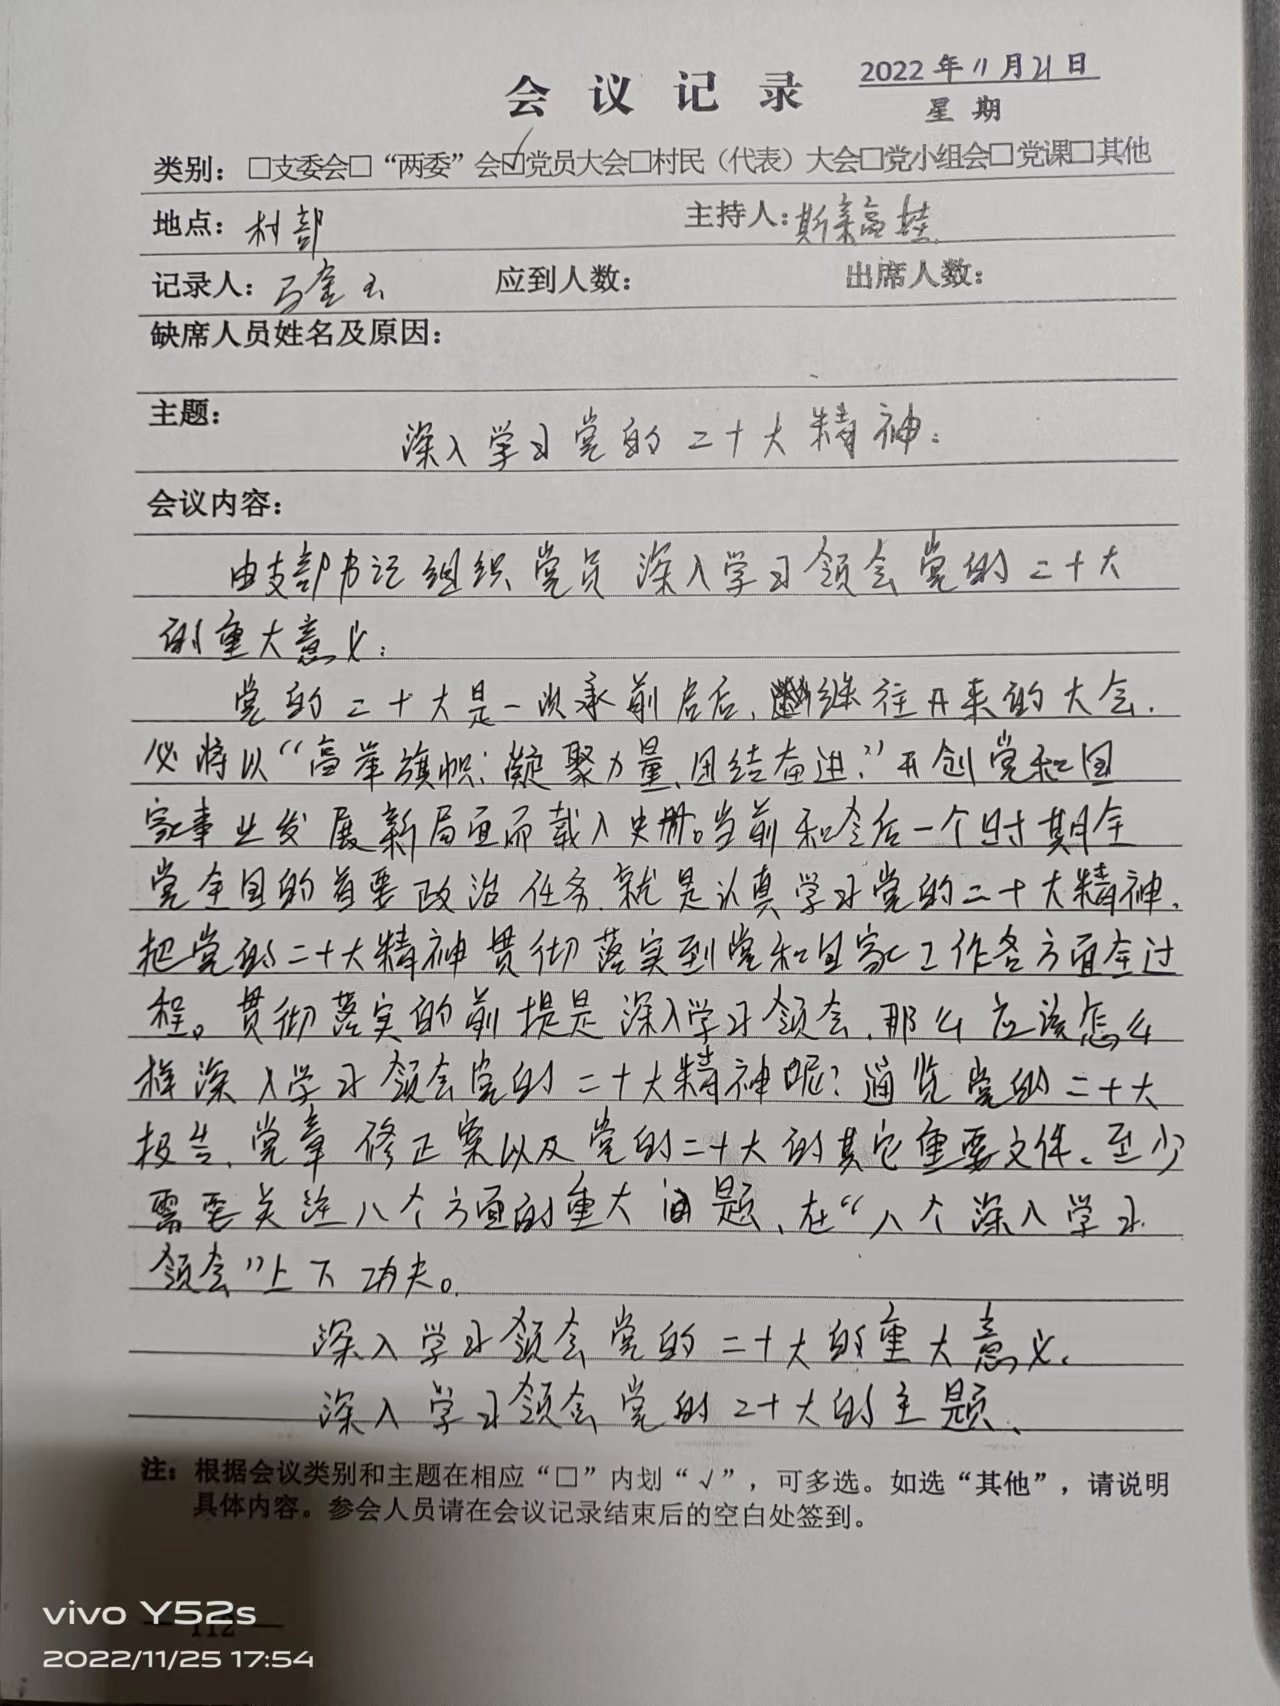 会议记录
2022年11月21日
星期
类别：□支委会□“两委”会☑党员大会□村民（代表）大会□党小组会□党课□其他
地点：村部 主持人：斯
记录人： 应到人数： 出席人数：
缺席人员姓名及原因：
主题：
深入学习党的二十大精神：
会议内容：
由支部书记组织党员深入学习领会党的二十大
的重大意义：
党的二十大是一次承前启后、继往开来的大会.
必将以“高举旗帜、凝聚力量、团结奋进”开创党和国
家事业发展新局面而载入史册。当前和今后一个时期全
党全国的首要政治任务、就是认真学习党的二十大精神、
把党的二十大精神贯彻落实到党和国家工作各方面全过
程。贯彻落实的前提是深入学习领会、那么应该怎么
样深入学习领会党的二十大精神呢？通览党的二十大
报告、党章修正案以及党的二十大的其它重要文件、至少
需要关注八个方面的重大问题、在“八个深入学习
领会”上下功夫。
深入学习领会党的二十大的重大意义、
深入学习领会党的二十大的主题、
注：根据会议类别和主题在相应“□”内划“√”，可多选。如选“其他”，请说明
具体内容。参会人员请在会议记录结束后的空白处签到。
112
vivo Y52s
2022/11/25 17:54